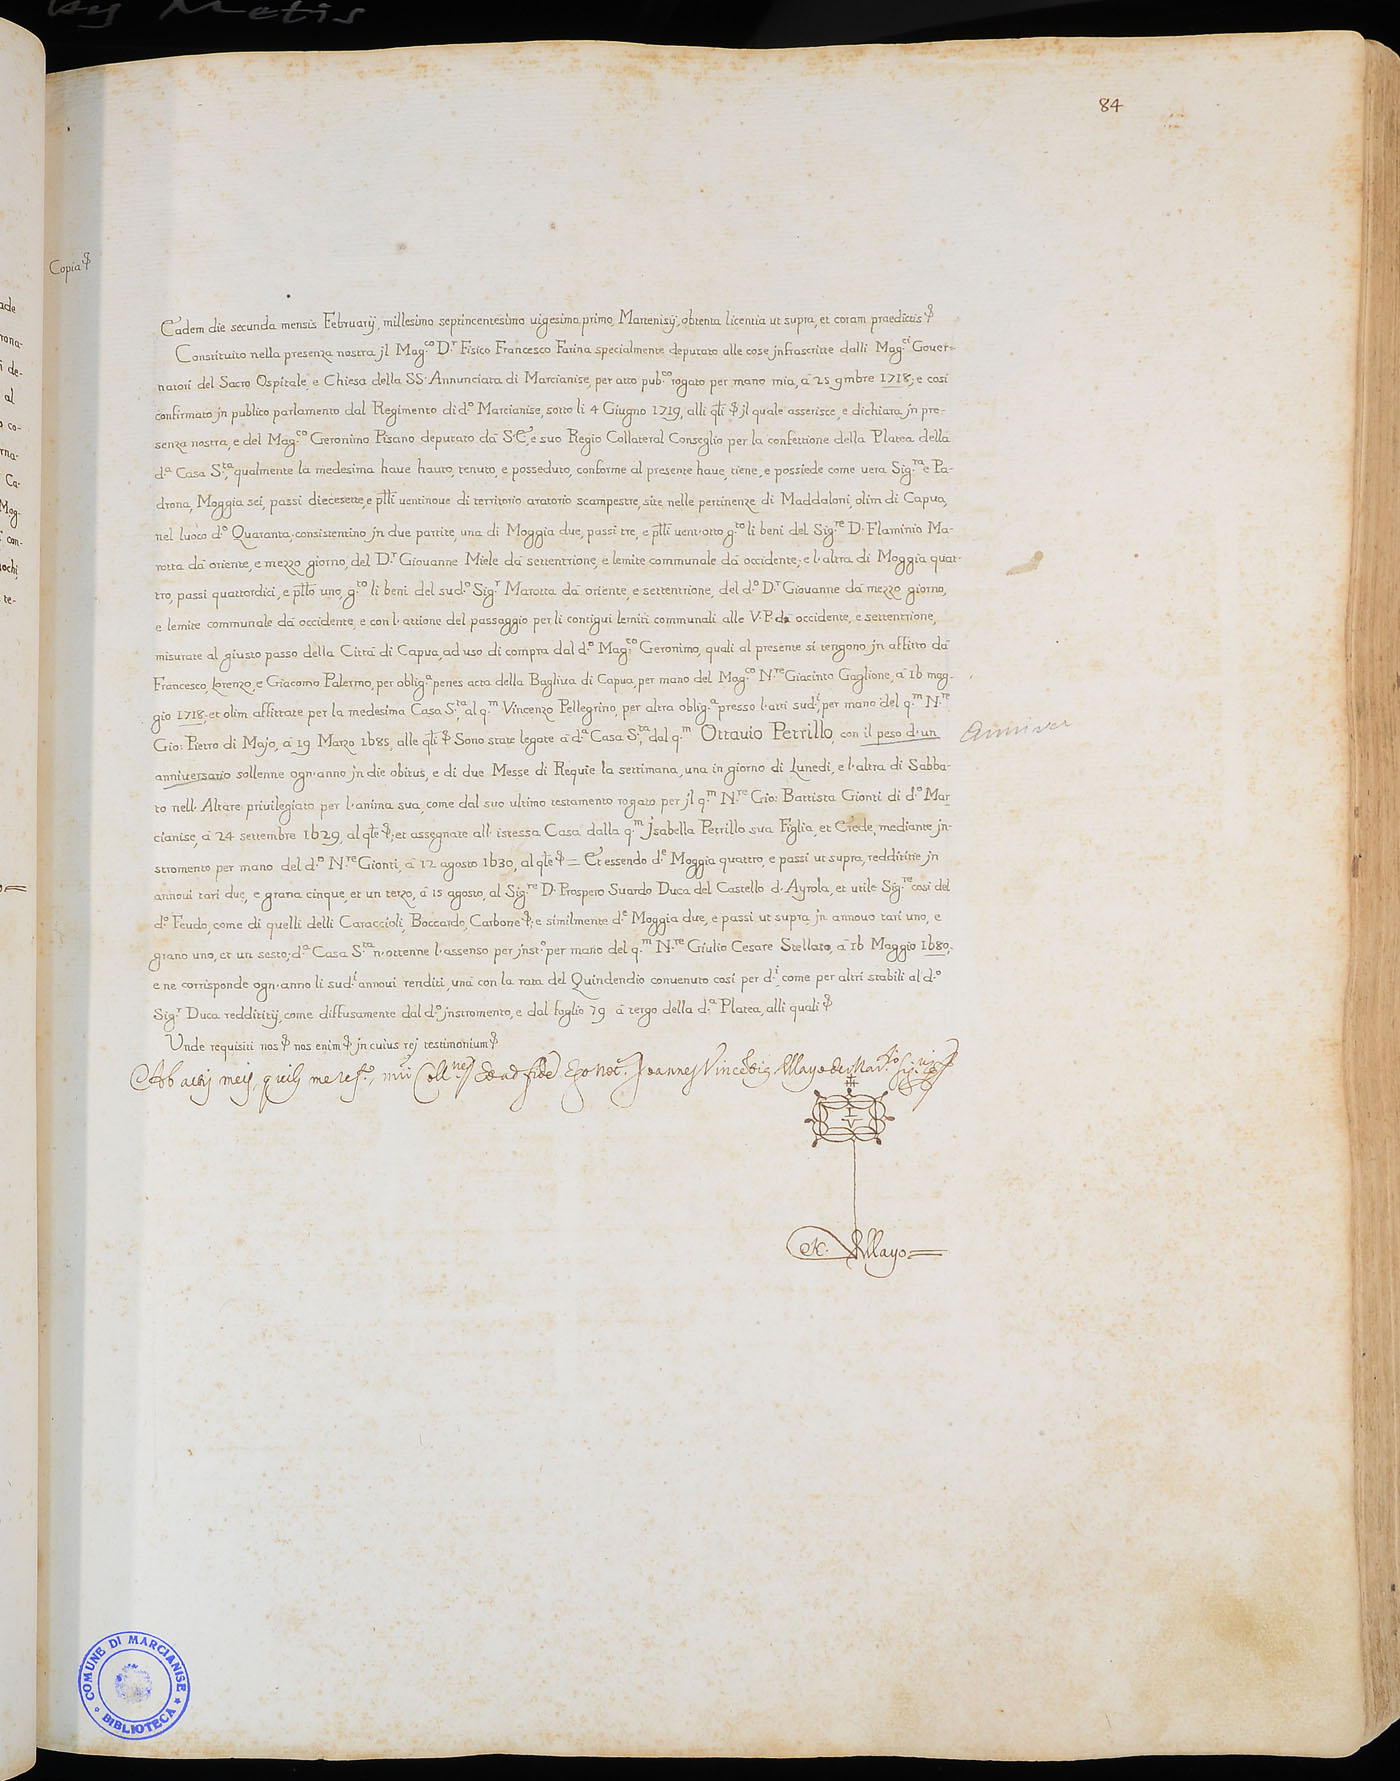 84
Copia
Eadem die secunda mensis Februarij, millesimo septincentesimo uigesimo primo, Martenisij, obtenta licentia ut supra, et coram praedictis
Constituito nella presenza nostra jl Mag.co D.r Fisico Francesco Farina specialmente deputato alle cose jnfrascritte dalli Mag.ci Gouer=
natori del Sacro Ospitale, e Chiesa della SS. Annunciata di Marcianise, per atto pub.co rogato per mano mia, à 25 9mbre 1718; e così
confirmato jn publico parlamento dal Regimento di d.o Marcianise, sotto li 4 Giugno 1719, alli qli jl quale asserisce, e dichiara jn pre-
senza nostra, e del Mag.co Geronimo Pisano deputato dà S.E., e suo Regio Collateral Conseglio per la confettione della Platea della
d.a Casa S.ta, qualmente la medesima haue hauto, tenuto, e posseduto, conforme al presente haue, tiene, e possiede come uera Sig.ra e Pa-
drona, Moggia sei, passi diecesette, e plli uentinoue di territorio aratorio scampestre, site nelle pertinenze di Maddaloni, olim di Capua,
nel luoco d.o Quaranta, consistentino jn due partite, una di Moggia due, passi tre, e plli uent'otto g.to li beni del Sig.re D. Flaminio Ma-
rotta dà oriente, e mezzo giorno, del D.r Giouanne Miele dà settentrione, e lemite communale dà occidente; e l'altra di Moggia quat-
tro, passi quattordici, e pllo uno, g.to li beni del sud.o Sig.r Marotta dà oriente, e settentrione, del d.o D.r Giouanne dà mezzo giorno,
e lemite communale dà occidente, e con l'attione del passaggio per li contigui lemiti communali alle V.P. dà occidente, e settentrione,
misurate al giusto passo della Città di Capua, ad uso di compra dal d.o Mag.co Geronimo, quali al presente si tengono jn affitto dà
Francesco, Lorenzo, e Giacomo Palermo, per oblig.a penes acta della Bagliua di Capua, per mano del Mag.co N.re Giacinto Gaglione, à 16 mag-
gio 1718; et olim affittate per la medesima Casa S.ta, al q.m Vincenzo Pellegrino, per altra oblig.a presso l'atti sud.i, per mano del q.m N.re
Gio: Pietro di Majo, à 19 Marzo 1685, alle qli Sono state legate à d.a Casa S.ta, dal q.m Ottauio Petrillo, con il peso d'un
Anniver
anniuersario sollenne ogn'anno jn die obitus, e di due Messe di Requie la settimana, una in giorno di Lunedi, e l'altra di Sabba-
to nell'Altare priuilegiato per l'anima sua, come dal suo ultimo testamento rogato per jl q.m N.re Gio: Battista Gionti di d.o Mar
cianise, à 24 settembre 1629, al qle; et assegnate all'istessa Casa dalla q.m Jsabella Petrillo sua Figlia, et Erede, mediante jn-
stromento per mano del d.o N.re Gionti, à 12 agosto 1630, al qle = Et essendo d.e Moggia quattro, e passi ut supra, reddititie jn
annoui tarì due, e grana cinque, et un terzo, à 15 agosto, al Sig.re D. Prospero Suardo Duca del Castello d'Ayrola, et utile Sig.re così del
d.o Feudo, come di quelli delli Caraccioli, Boccardo, Carbone; e similmente d.e Moggia due, e passi ut supra, jn annouo tarì uno, e
grano uno, et un sesto; d.a Casa S.ta n'ottenne l'assenso per jnst.o per mano del q.m N.re Giulio Cesare Stellato, à 16 Maggio 1680,
e ne corrisponde ogn'anno li sud.i annoui renditi, unà con la rata del Quindendio conuenuto così per d.i, come per altri stabili al d.o
Sig.r Duca reddititij, come diffusamente dal d.o jnstromento, e dal foglio 79 à tergo della d.a Platea, alli quali
Unde requisiti nos nos enim jn cuius rej testimonium
Ab actis meis
I
V
Mayo
COMUNE DI MARCIANISE
BIBLIOTECA